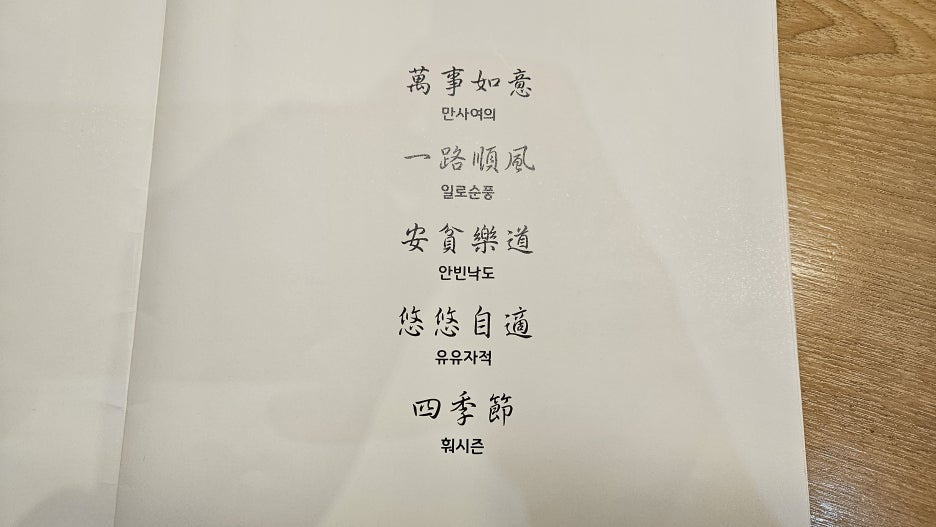 萬事如意
만사여의
一路順風
일로순풍
安貧樂道
안빈낙도
悠悠自適
유유자적
四季節
훠시즌